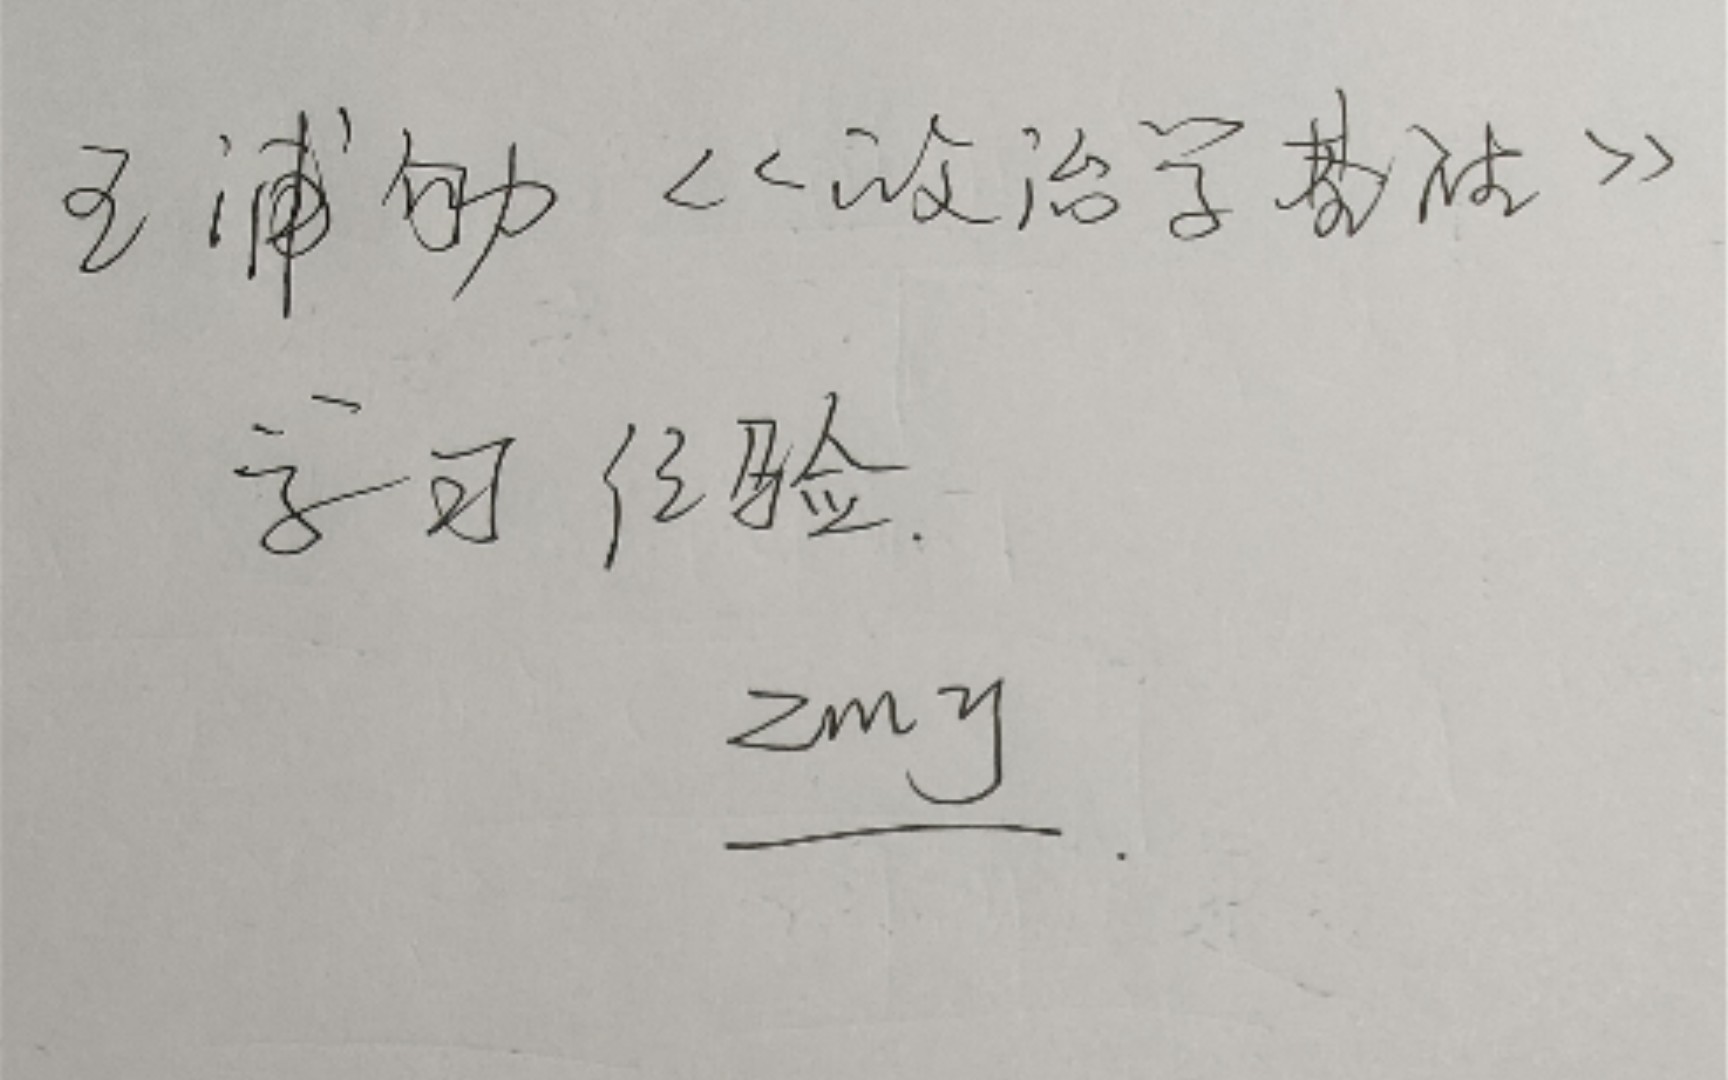 王浦劬<<政治学基础>>
学习经验.
zmy.